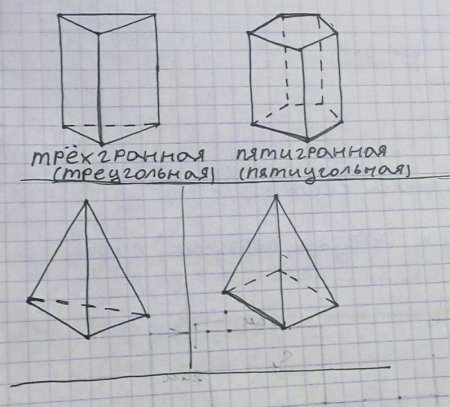 трёхгранная
(треугольная)
пятигранная
(пятиугольная)